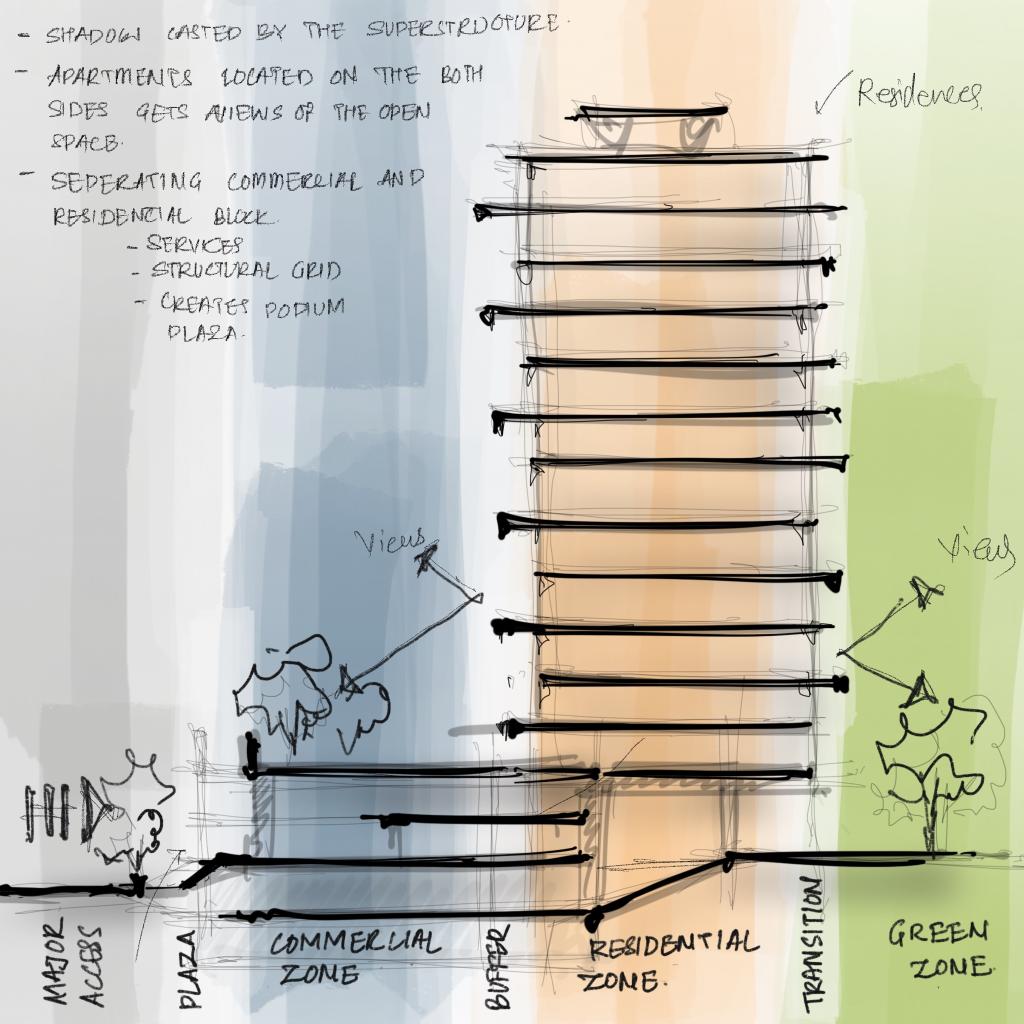 - SHADOW CASTED BY THE SUPERSTRUCTURE.
- APARTMENTS LOCATED ON THE BOTH
SIDES GETS VIEWS OF THE OPEN
SPACE.
- SEPERATING COMMERCIAL AND
RESIDENTIAL BLOCK.
- SERVICES
- STRUCTURAL GRID
- CREATES PODIUM
PLAZA.
Residences.
Views
Views
MAJOR
ACCESS
PLAZA
COMMERCIAL
ZONE
BUFFER
RESIDENTIAL
ZONE.
TRANSITION
GREEN
ZONE.